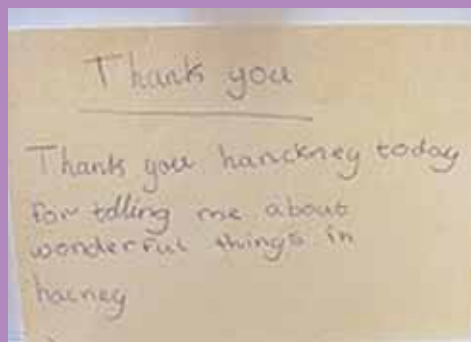 Thank you
Thank you hanckney today
for tdlling me about
wonderful things in
hacney